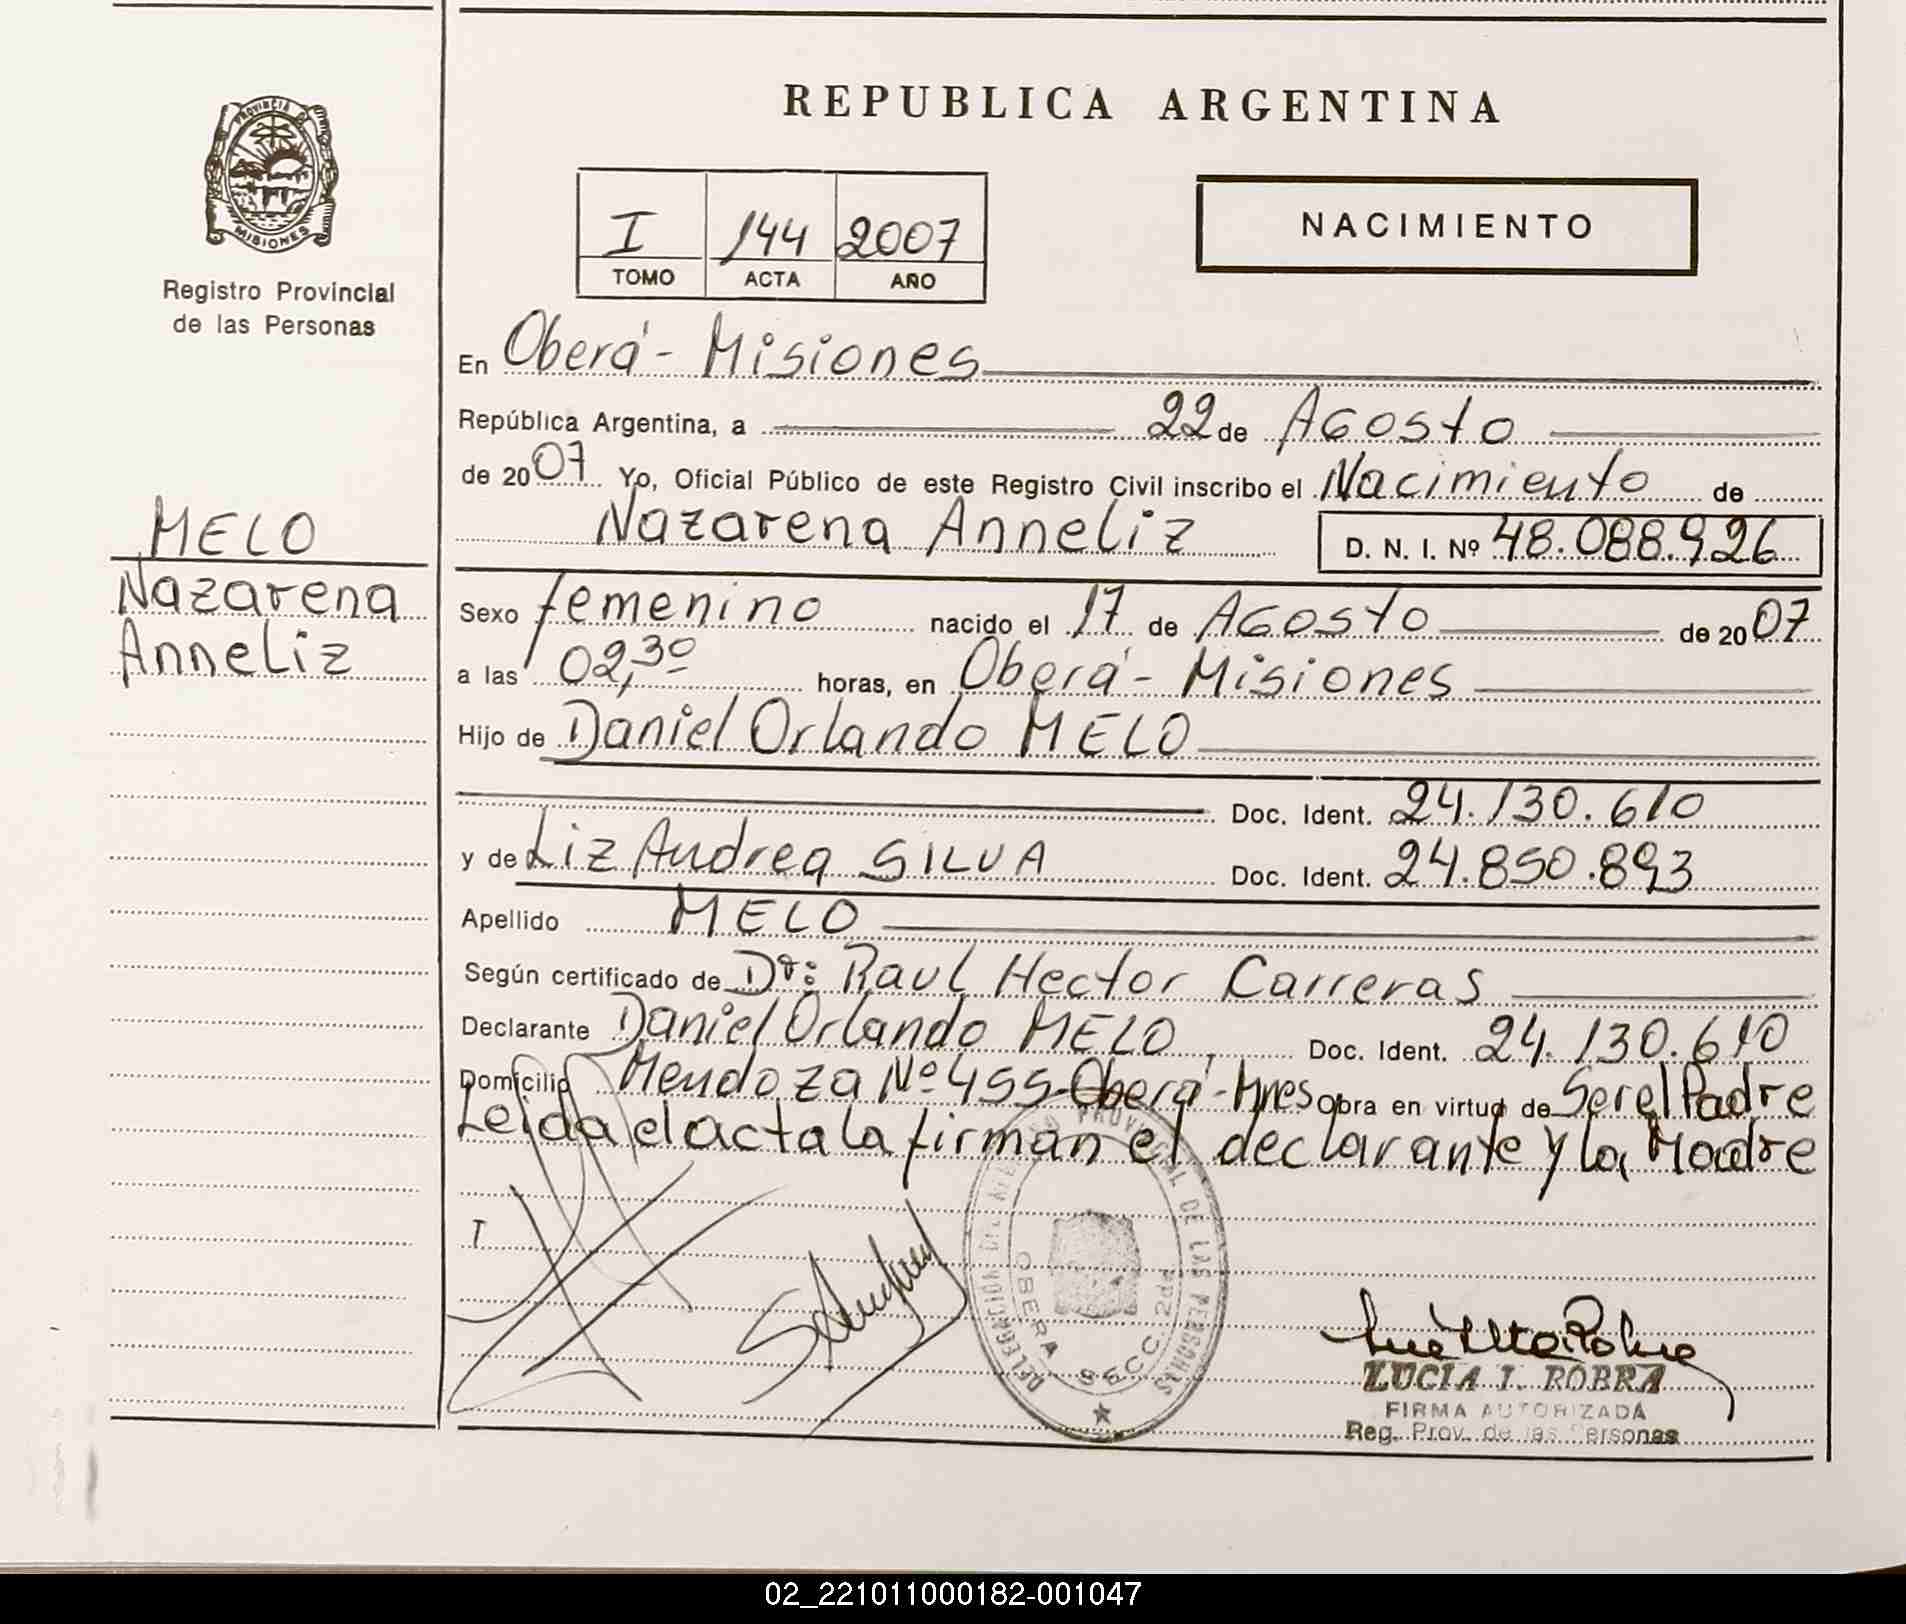 PROVINCIA DE
MISIONES
Registro Provincial
de las Personas
MELO
Nazarena
Anneliz
REPUBLICA ARGENTINA
I 144 2007
TOMO ACTA AÑO
NACIMIENTO
En Oberá - Misiones
República Argentina, a 22 de Agosto
de 2007 Yo, Oficial Público de este Registro Civil inscribo el Nacimiento de
Nazarena Anneliz D. N. I. Nº 48.088.926
Sexo femenino nacido el 17 de Agosto de 2007
a las 02,30 horas, en Oberá - Misiones
Hijo de Daniel Orlando MELO
Doc. Ident. 24.130.610
y de Liz Andrea SILVA Doc. Ident. 24.850.893
Apellido MELO
Según certificado de Dr: Raul Hector Carreras
Declarante Daniel Orlando MELO, Doc. Ident. 24.130.610
Domicilio Mendoza Nº 455-Oberá-Mnes Obra en virtud de Ser el Padre
Leida el acta la firman el declarante y la Madre
DELEGACION DEL REGISTRO PROVINCIAL DE LAS PERSONAS
OBERA SECC. 2da
LUCIA I. ROBRA
FIRMA AUTORIZADA
Reg. Prov. de las Personas
02_221011000182-001047